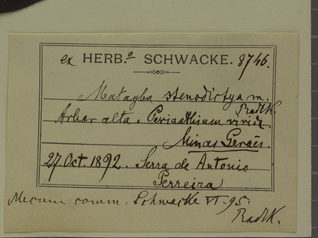 ex HERB.º SCHWACKE. 8746.
Matayba stenodictya m.
RadlK.
Arbor alta. Perianthium viride
Minas Geraës.
27. Oct 1892. Serra de Antonio
Perreira
Mecum comm. Schwacke VI. 95.
RadlK.